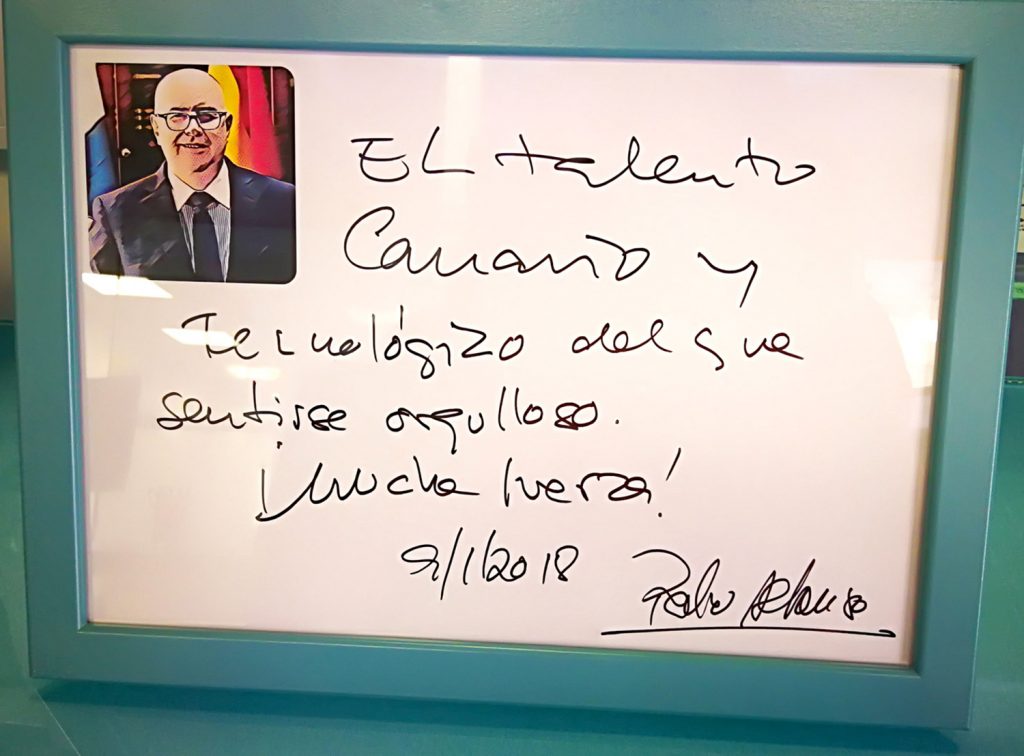 El talento
Canario y
Tecnológico del que
sentirse orgulloso.
¡Mucha fuerza!
9/1/2018
Pablo Alonso